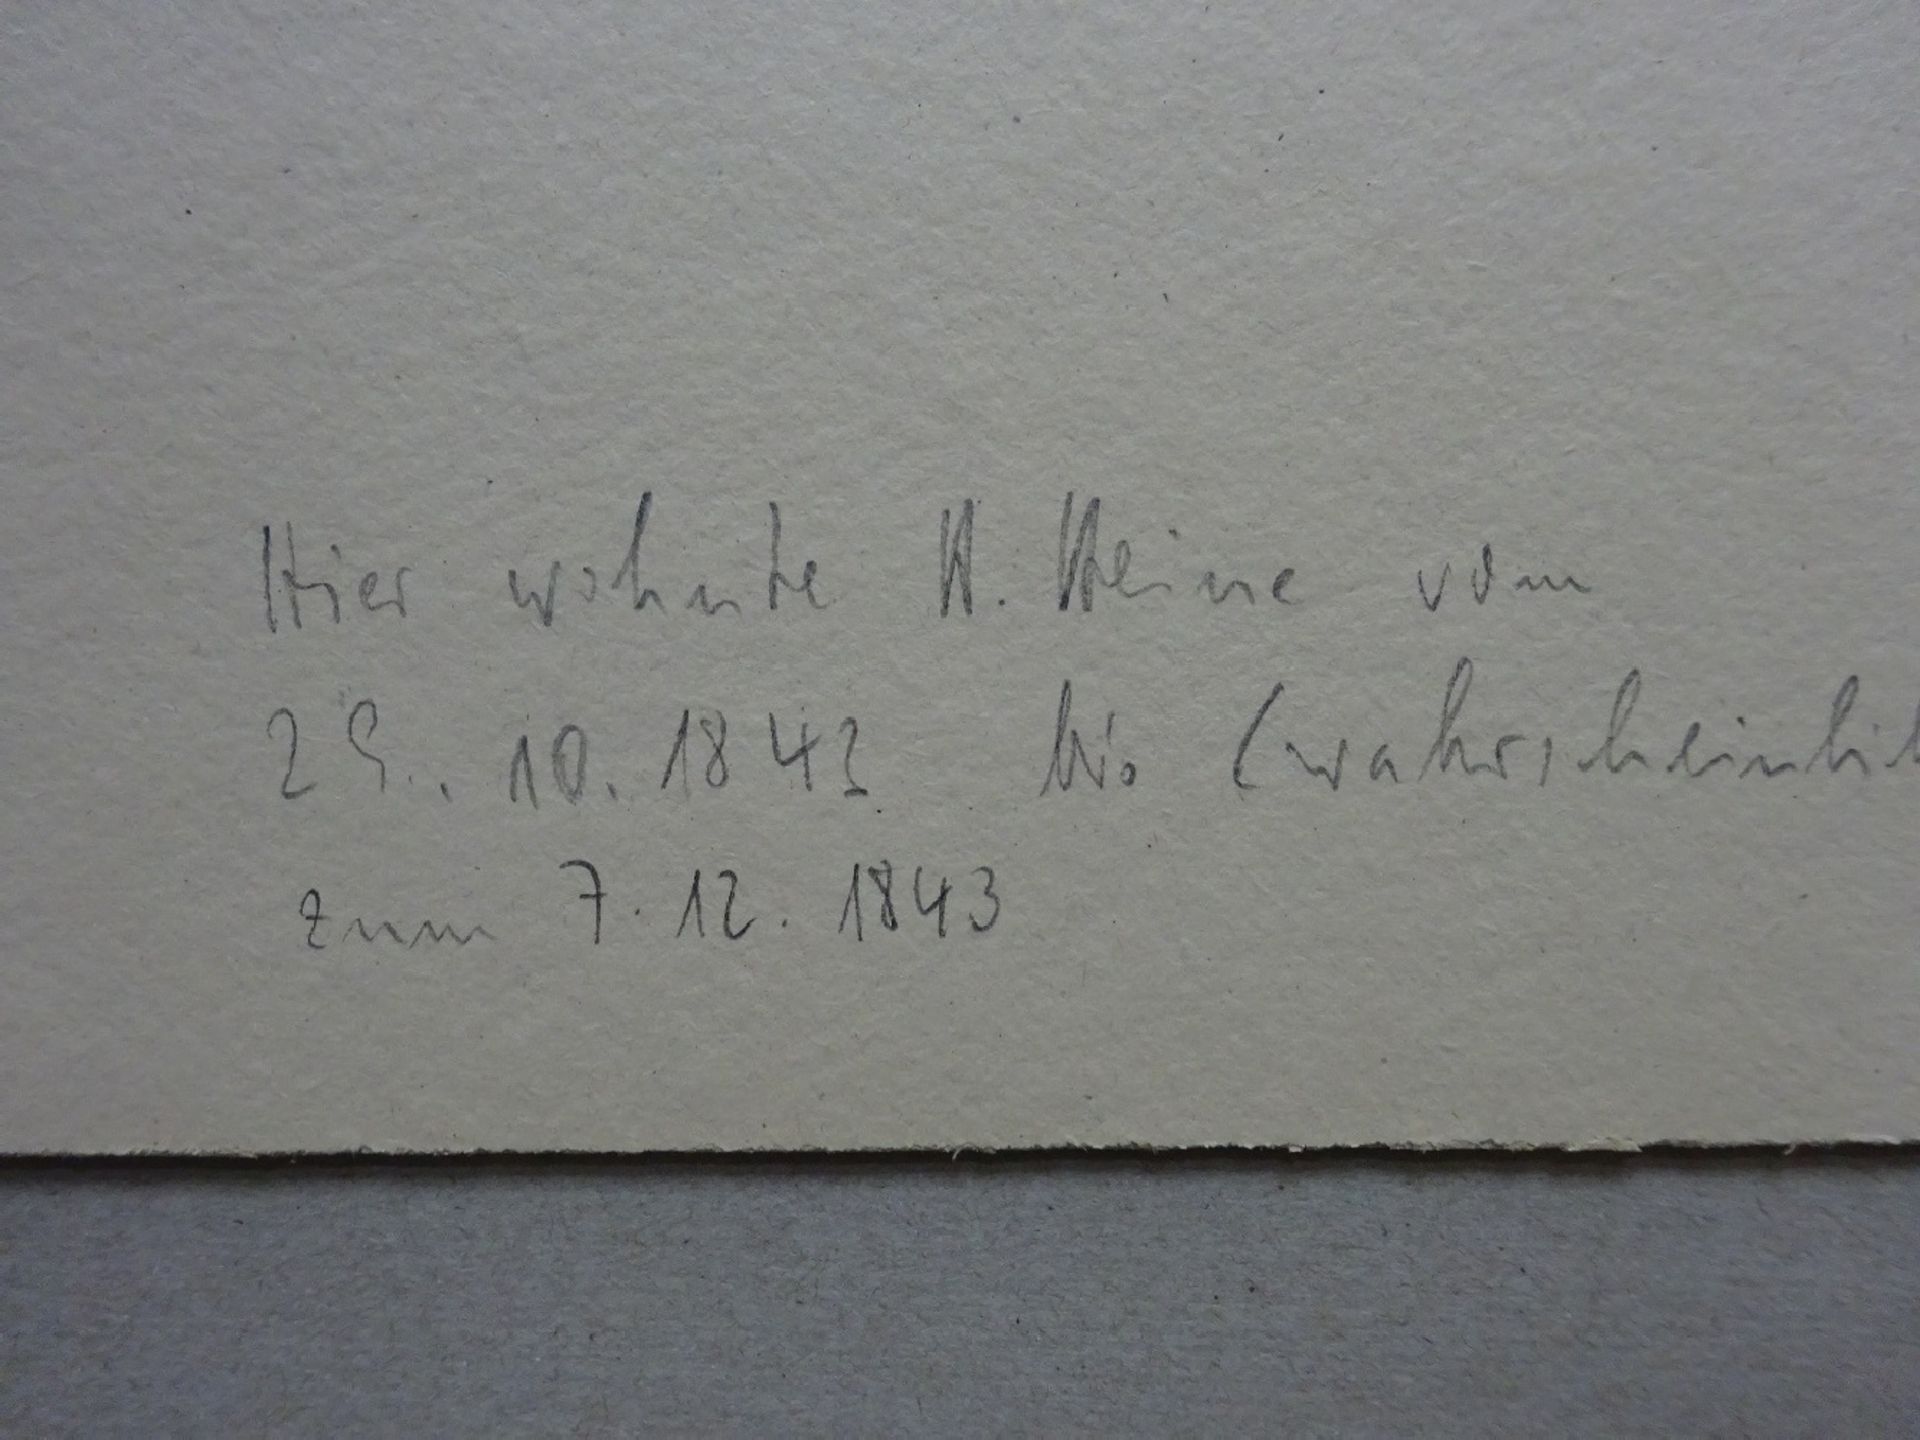 Hier wohnte H. Heine vom
29. 10. 1843 bis (wahrscheinlich
zum 7. 12. 1843